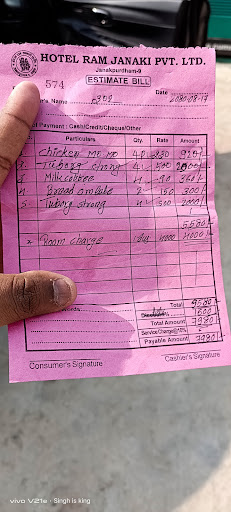 HOTEL RAM JANAKI PVT. LTD.
Janakpurdham-9
574 ESTIMATE BILL Date 2080-08-17
's Name
of Payment : Cash/Credit/Cheque/Other
Particulars Qty. Rate Amount
Chicken
2. Tuborg strong 4
3 Milk coffee 4 90 360/-
4 Bread omlate 2 150 300/-
5 Tuborg strong 4 500 2000/-
5580/-
Room charge 4000 4000/-
Total 9580/-
Total Amount 7980/-
Service Charge@10%
Payable Amount 7980/-
Consumer's Signature Cashier's Signature
vivo V21e · Singh is king